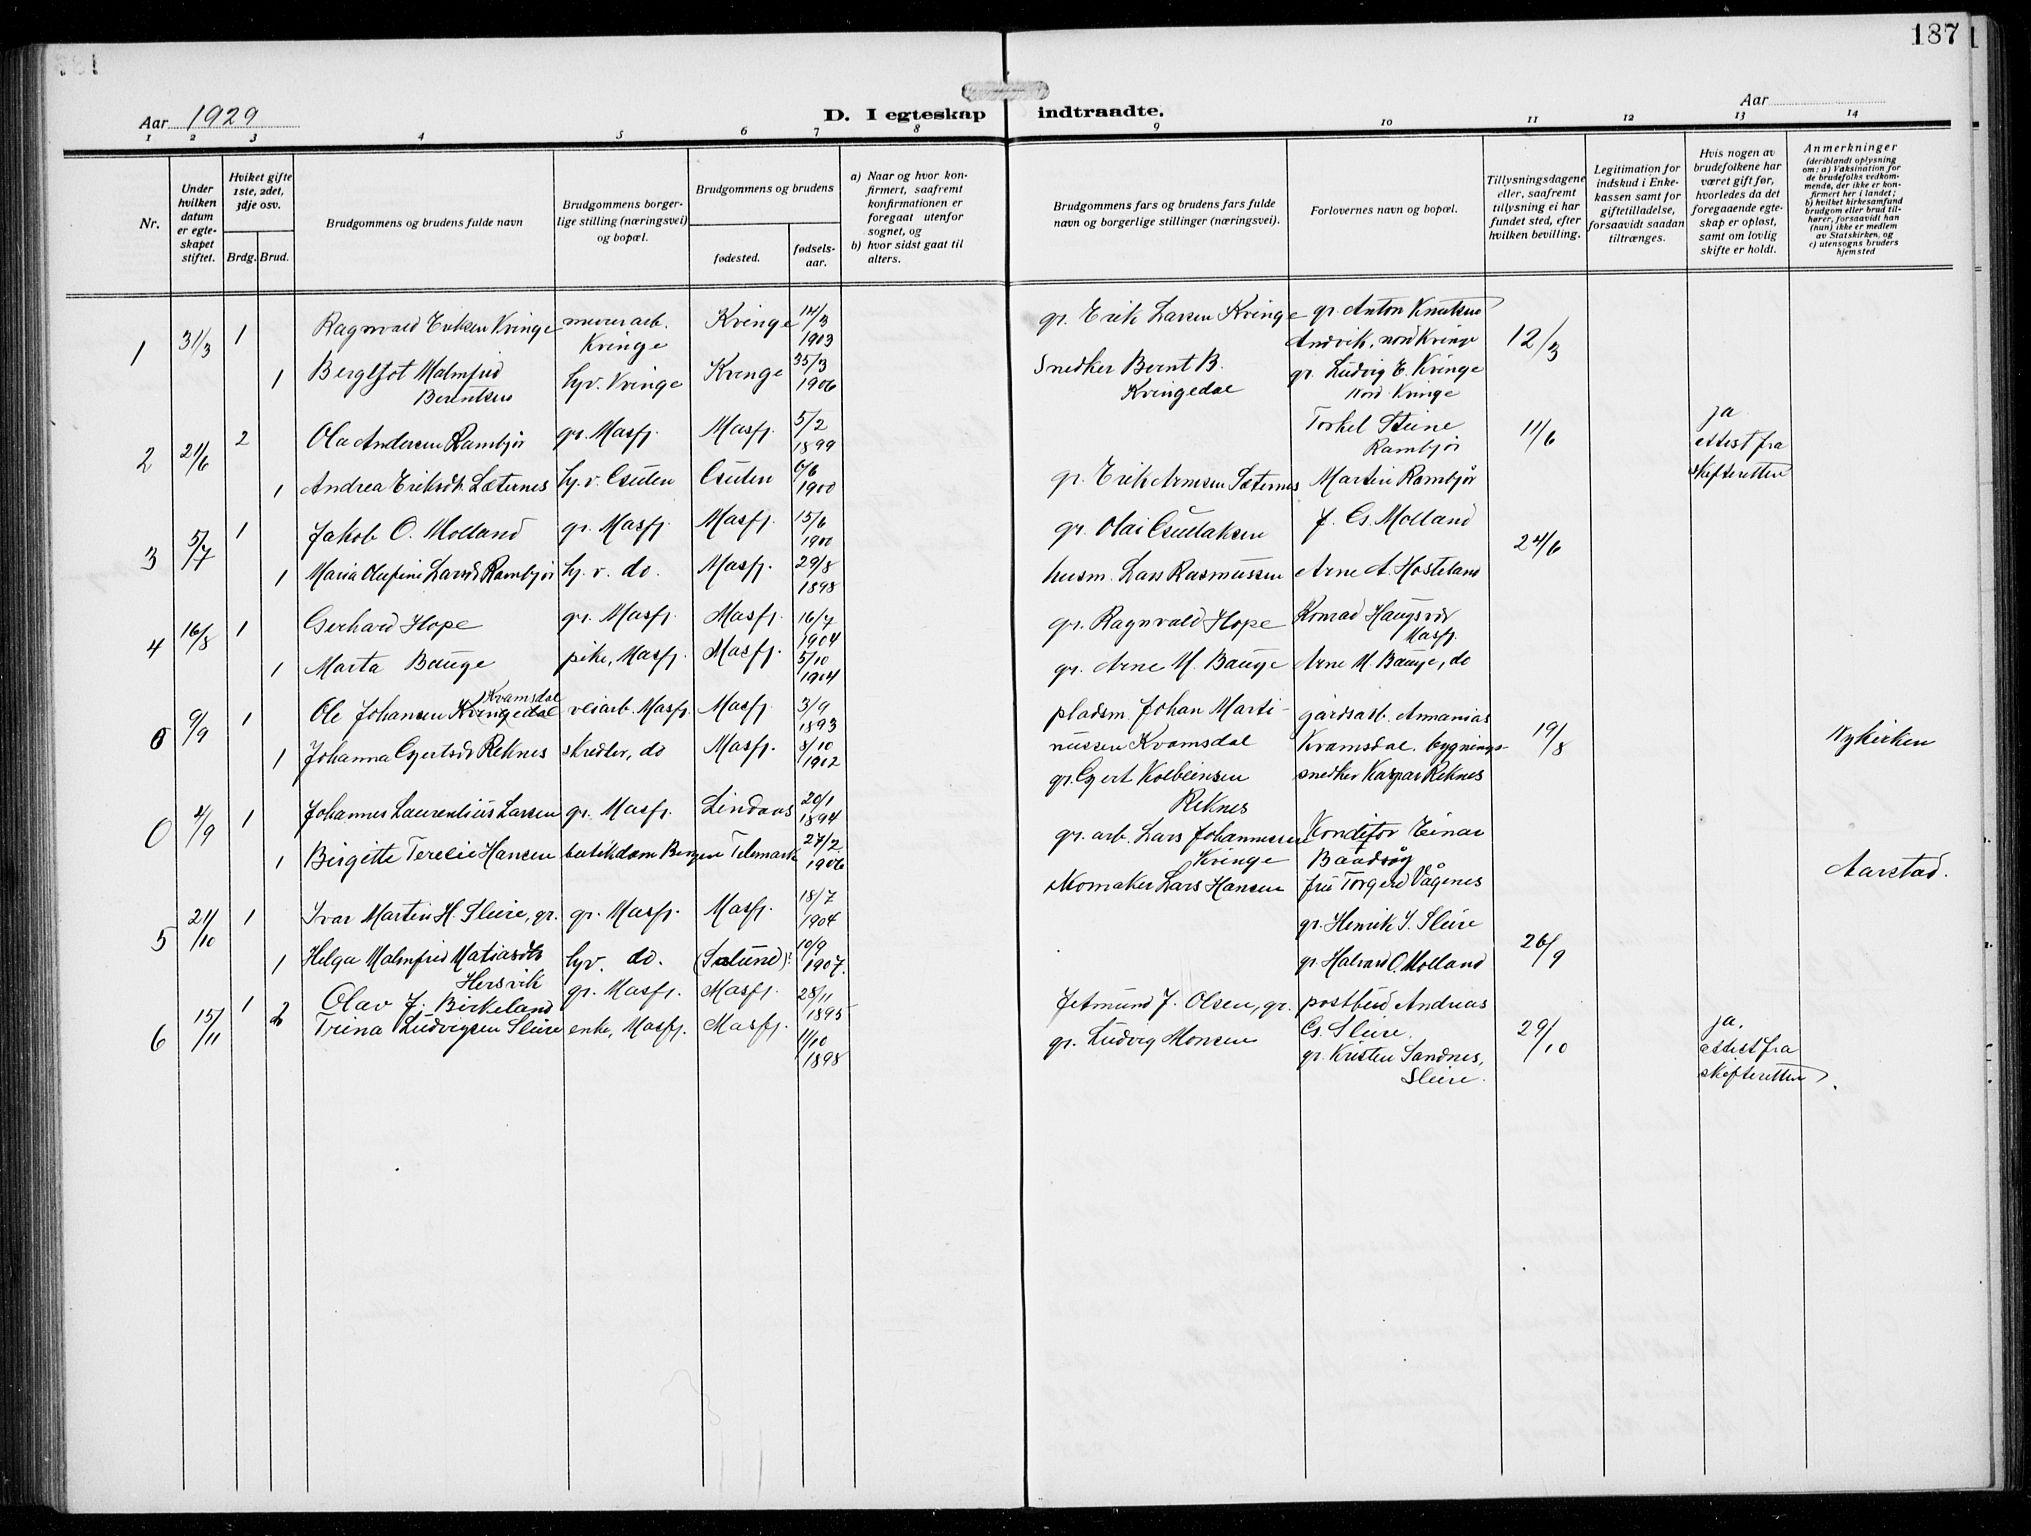 187
Aar 1929
D. I egteskap indtraadte.
Aar
1 2 3 4 5 6 7 8 9 10 11 12 13 14
Nr.
Under hvilken datum er egteskapet stiftet.
Hviket gifte 1ste, 2det, 3dje osv.
Brdg. Brud.
Brudgommens og brudens fulde navn
Brudgommens borgerlige stilling (næringsvei) og bopæl.
Brudgommens og brudens
fødested.
fødsels-aar.
a) Naar og hvor konfirmert, saafremt konfirmationen er foregaat utenfor sognet, og
b) hvor sidst gaat til alters.
Brudgommens fars og brudens fars fulde navn og borgerlige stillinger (næringsvei).
Forlovernes navn og bopæl.
Tillysningsdagene eller, saafremt tillysning ei har fundet sted, efter hvilken bevilling.
Legitimation for indskud i Enkekassen samt for giftetilladelse, forsaavidt saadan tiltrænges.
Hvis nogen av brudefolkene har været gift før, hvorledes da det foregaaende egteskap er opløst, samt om lovlig skifte er holdt.
Anmerkninger
(deriblandt oplysning om: a) Vaksination for de brudefolks vedkommende, der ikke er konfirmert her i landet; b) hvilket kirkesamfund brudgom eller brud tilhører, forsaavidt han (hun) ikke er medlem av Statskirken, og c) utensogns bruders hjemsted
1 31/3 1 Ragnvald Eriksen Kvinge murerarb. Kvinge Kvinge 14/3 1903 gr. Erik Larsen Kvinge gr. Anton Knutsen Andvik, nord Kvinge 12/3
1 Bergljot Malmfrid Berentsen hv. Kvinge Kvinge 1906 Snedker Bernt B. Kvingedal gr. Ludvig E. Kvinge Nord Kvinge
2 21/6 2 Ola Andersen Rambjør gr. Masfj. Masfj. 5/2 1899 Torkel Steine Rambjør 11/6 ja attest fra skifteretten
1 Andrea Eriksdt. Sæternes hv. 6/6 1900 gr. Erik Arnesen Sæternes Martin Rambjør
3 5/7 1 Jakob O. Molland gr. Masfj. Masfj. 15/6 1900 gr. Olai J. Molland 24/6
1 Maria Olufine Larsd. Rambjør hv. do. Masfj. 29/8 1898 husm. Lars Rasmussen Arne A. Hosteland
4 16/8 1 Gerhard Hope gr. Masfj. Masfj. 16/7 1904 gr. Ragnvald Hope Konrad Haugsvær Masfj.
1 Marta Bauge pike, Masfj. Masfj. 5/10 1904 gr. Arne M. Bauge Arne M. Bauge, do
0 9/9 1 Ole Johansen Kvingedal Kvamsdal veiarb. Masfj. Masfj. 3/9 1893 pladsm. Johan Martinussen Kvamsdal gårdsarb. Annanias Kvamsdal, bygnings- 19/8 Nykirken
1 Johanna Gjertsdr Reknes skreder, do Masfj. 8/10 1902 gr. Gjert Kolbeinsen Reknes snedker Kaspar Reknes
0 4/9 1 Johannes Laurentius Larsen gr. Masfj. Lindaas 20/1 1894 gr. arb. Lars Johannessen Kvinge Konditor Einar Aarstad.
1 Birgitte Terelie Hansen butikdam Bergen Telemark 27/2 1906 skomaker Lars Hansen fru Torgerd Vågenes
5 21/10 1 Ivar Martin H. Sleire, gr. gr. Masfj. Masfj. 18/7 1904 gr. Henrik I. Sleire 26/9
1 Helga Malmfrid Matiasdtr Hersvik hv. do. 10/9 1907. gr. Halvard O. Molland
6 15/11 1 Olav J. Birkeland gr. Masfj. Masfj. 28/11 1895 Jetmund J. Olsen, gr. postbud Andreas Sleire. 29/10 ja, attest fra skifteretten.
2 Trina Ludvigsen Sleire enke, Masfj. Masfj. 11/10 1898 gr. Ludvig Monsen gr. Kristen Sandnes, Sleire.